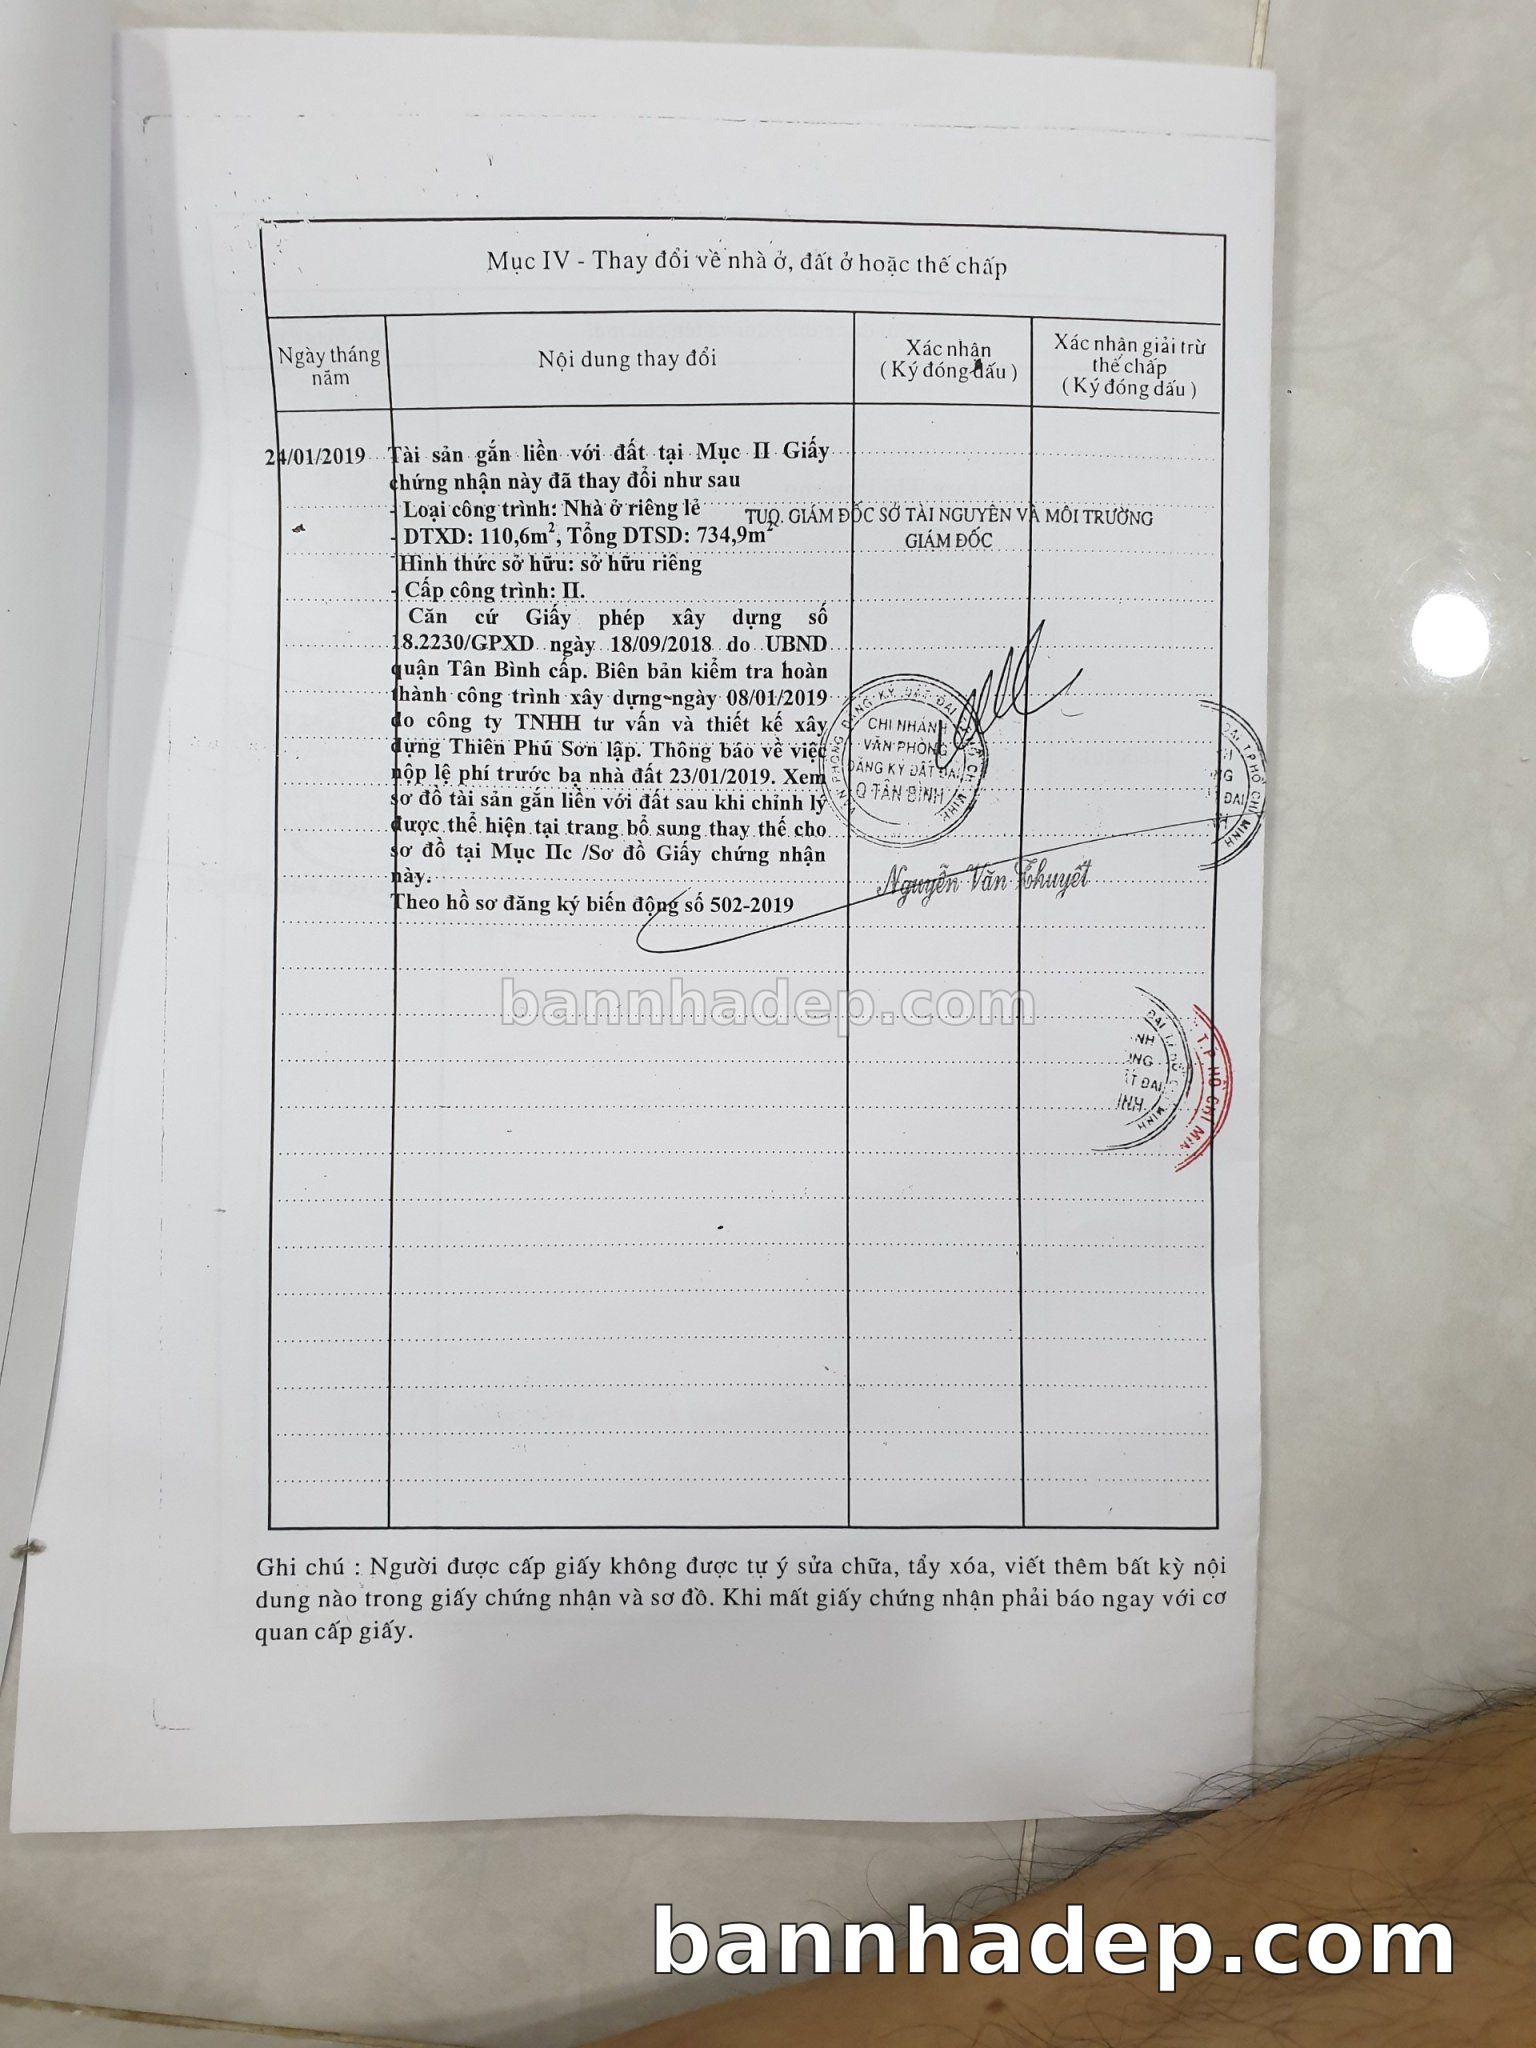 Mục IV - Thay đổi về nhà ở, đất ở hoặc thế chấp
Ngày tháng
năm
Nội dung thay đổi
Xác nhận
( Ký đóng dấu )
Xác nhận giải trừ
thế chấp
( Ký đóng dấu )
24/01/2019
Tài sản gắn liền với đất tại Mục II Giấy
chứng nhận này đã thay đổi như sau
- Loại công trình: Nhà ở riêng lẻ
- DTXD: 110,6m², Tổng DTSD: 734,9m²
Hình thức sở hữu: sở hữu riêng
- Cấp công trình: II.
Căn cứ Giấy phép xây dựng số
18.2230/GPXD ngày 18/09/2018 do UBND
quận Tân Bình cấp. Biên bản kiểm tra hoàn
thành công trình xây dựng ngày 08/01/2019
do công ty TNHH tư vấn và thiết kế xây
dựng Thiên Phú Sơn lập. Thông báo về việc
nộp lệ phí trước bạ nhà đất 23/01/2019. Xem
sơ đồ tài sản gắn liền với đất sau khi chỉnh lý
được thể hiện tại trang bổ sung thay thế cho
sơ đồ tại Mục IIc /Sơ đồ Giấy chứng nhận
này.
Theo hồ sơ đăng ký biến động số 502-2019
TUQ. GIÁM ĐỐC SỞ TÀI NGUYÊN VÀ MÔI TRƯỜNG
GIÁM ĐỐC
CHI NHÁNH
VĂN PHÒNG
ĐĂNG KÝ ĐẤT ĐAI
Q TÂN BÌNH
Nguyễn Văn Thuyết
ĐAI T.P HỒ CHÍ MINH
NG
ĐAI
bannhadep.com
NH
NG
ĐẤT ĐAI
INH
T.P HỒ CHÍ MIN
Ghi chú : Người được cấp giấy không được tự ý sửa chữa, tẩy xóa, viết thêm bất kỳ nội
dung nào trong giấy chứng nhận và sơ đồ. Khi mất giấy chứng nhận phải báo ngay với cơ
quan cấp giấy.
bannhadep.com